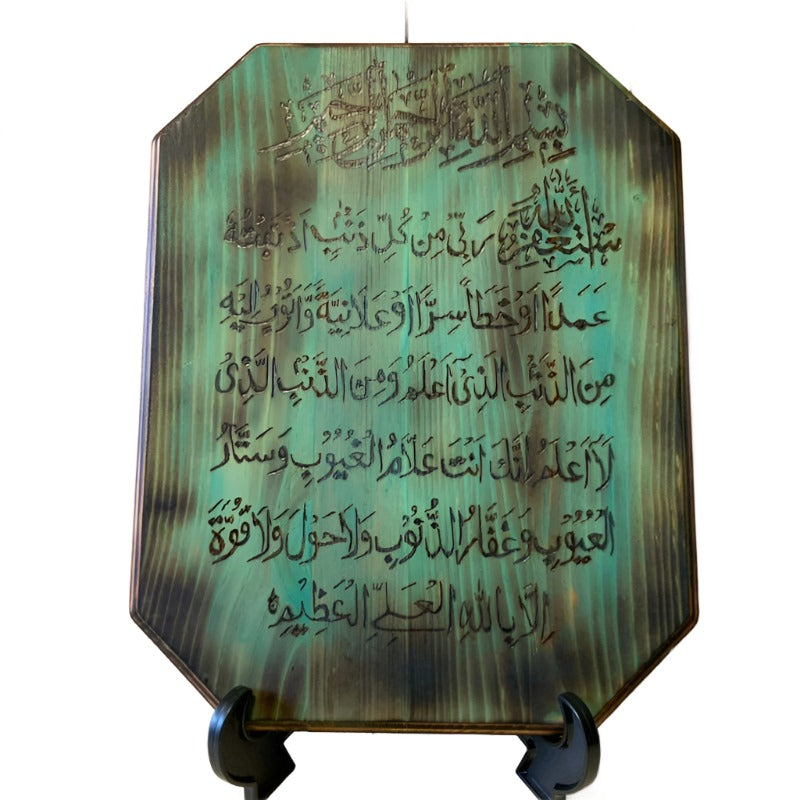 بِسْمِ اللهِ الرَّحْمٰنِ الرَّحِيْمِ
اَسْتَغْفِرُ اللهَ رَبِّىْ مِنْ كُلِّ ذَنْۢبٍ اَذْنَبْتُهٗ
عَمَدًا اَوْ خَطَأً سِرًّا اَوْ عَلَانِيَةً وَّاَتُوْبُ اِلَيْهِ
مِنَ الذَّنْۢبِ الَّذِىْٓ اَعْلَمُ وَمِنَ الذَّنْۢبِ الَّذِىْ
لَآ اَعْلَمُ اِنَّكَ اَنْتَ عَلَّامُ الْغُيُوْبِ وَسَتَّارُ
الْعُيُوْبِ وَغَفَّارُ الذُّنُوْبِ وَلَا حَوْلَ وَلَا قُوَّةَ
اِلَّا بِاللهِ الْعَلِىِّ الْعَظِيْمِ